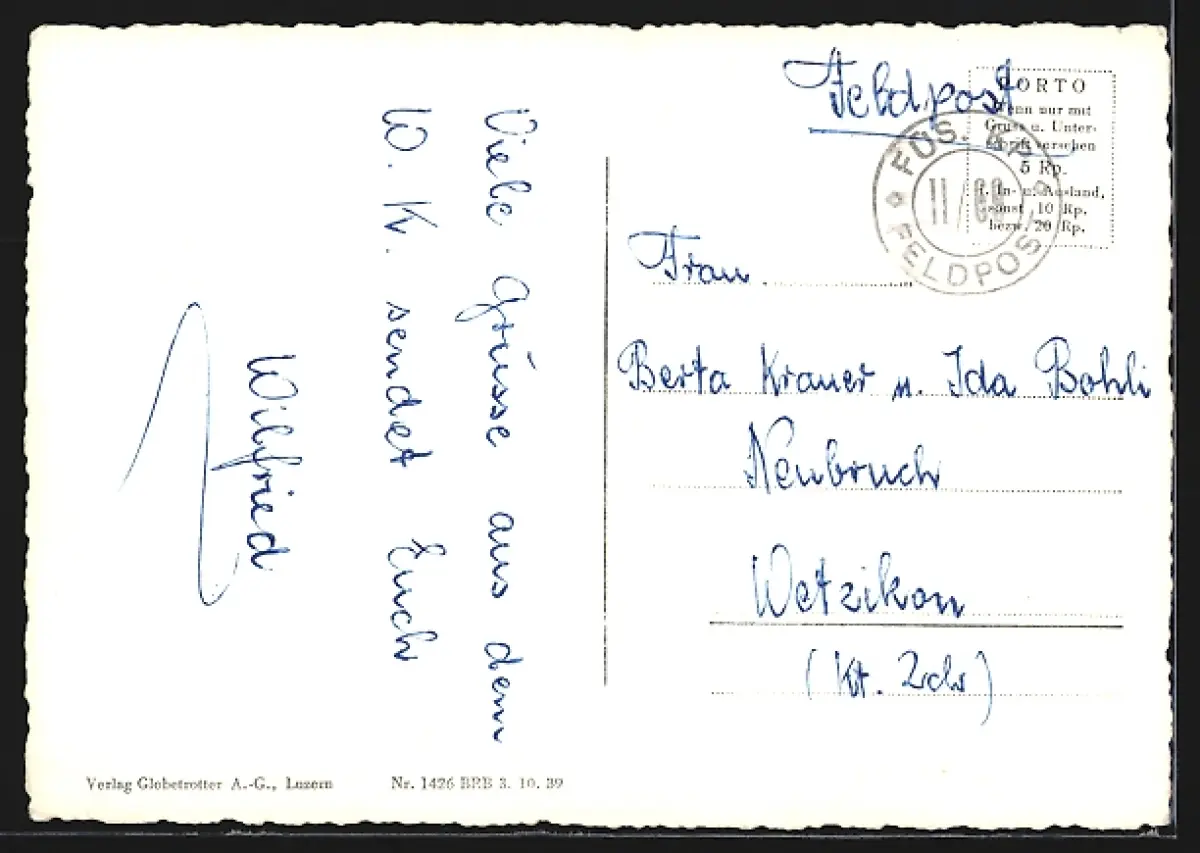 Viele Grüsse aus dem
W. K. sendet Euch
Wilfried
Feldpost
PORTO
Wenn nur mit
Gruss u. Unter-
schrift versehen
5 Rp.
f. In- u. Ausland,
sonst 10 Rp.
bezw. 20 Rp.
FÜS. KP.
II/
FELDPOST
Frau
Berta Krauer u. Ida Bohli
Neubruch
Wetzikon
(Kt. Zch)
Verlag Globetrotter A.-G., Luzern
Nr. 1426 BRB 3. 10. 39